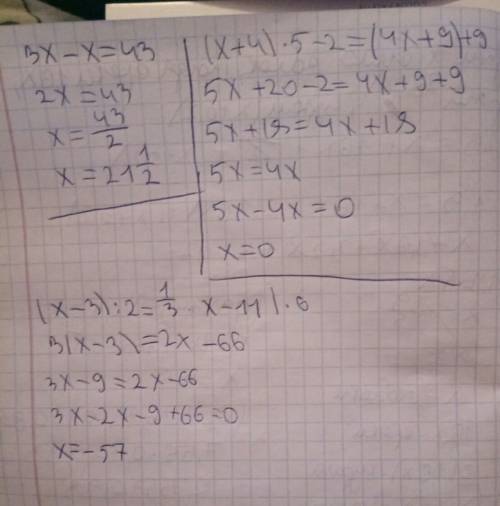 3x-x=43
2x=43
x=43/2
x=21 1/2
(x+4)·5-2=(4x+9)+9
5x+20-2=4x+9+9
5x+18=4x+18
5x=4x
5x-4x=0
x=0
(x-3):2=1/3 x-11 |·6
3(x-3)=2x-66
3x-9=2x-66
3x-2x-9+66=0
x=-57